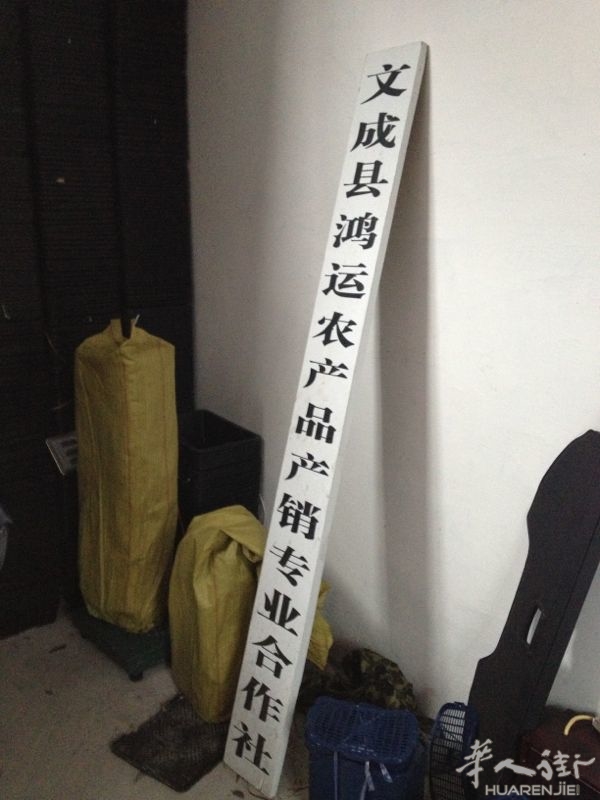 文成县鸿运农产品产销专业合作社
華人街
HUARENJIE